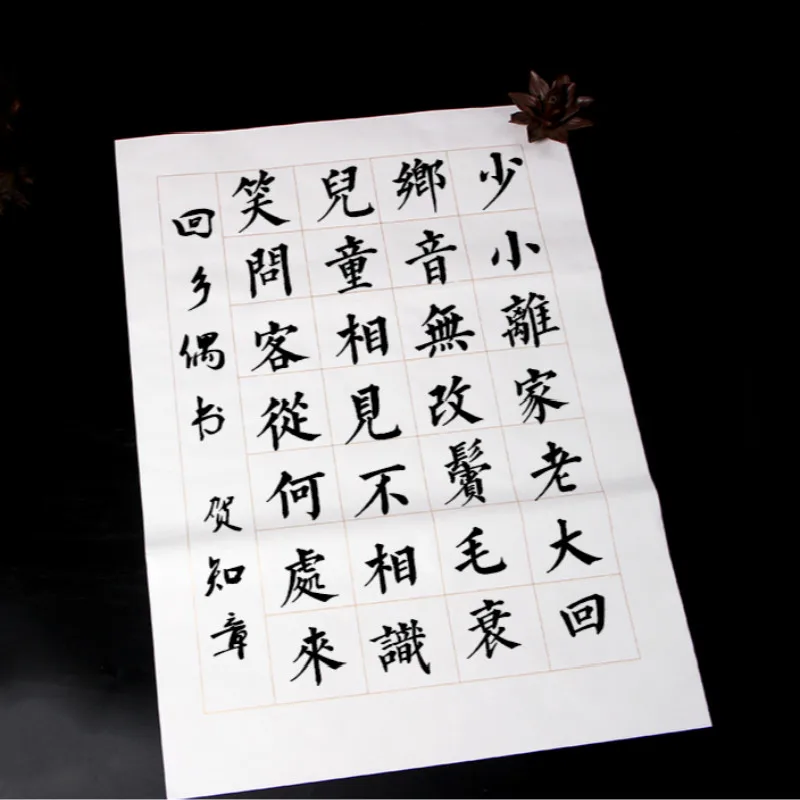 少小離家老大回
鄉音無改鬢毛衰
兒童相見不相識
笑問客從何處來
回乡偶书 贺知章